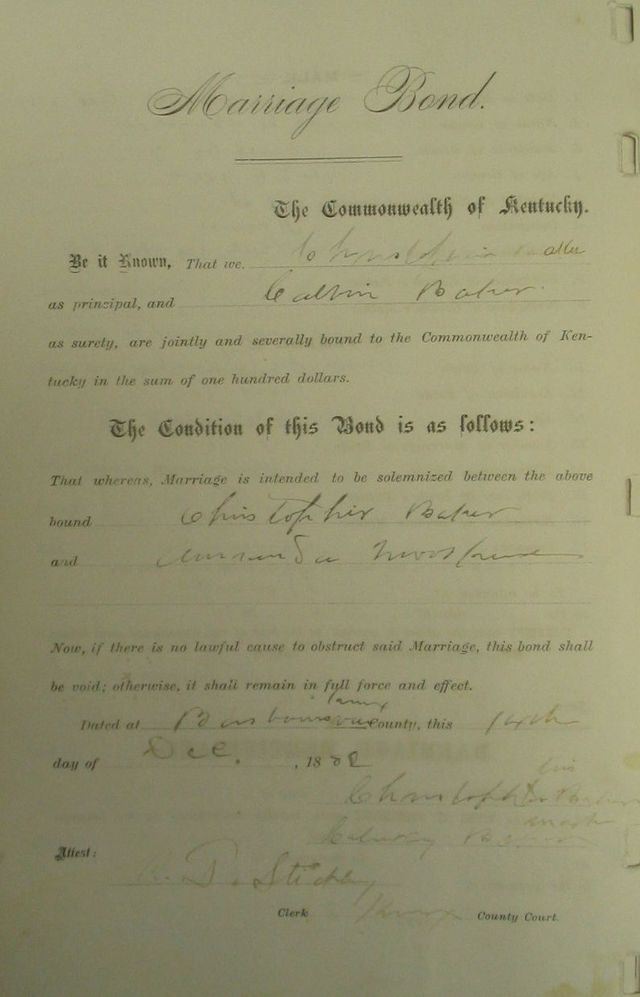 Marriage Bond.
The Commonwealth of Kentucky.
Be it Known, That we, Christopher Baker
as principal, and Calvin Baker
as surety, are jointly and severally bound to the Commonwealth of Ken-
tucky in the sum of one hundred dollars.
The Condition of this Bond is as follows:
That whereas, Marriage is intended to be solemnized between the above
bound Christopher Baker
and
Now, if there is no lawful cause to obstruct said Marriage, this bond shall
be void; otherwise, it shall remain in full force and effect.
Knox
Dated at Barbourville County, this
day of Dec. , 18
his
Christopher Baker
mark
Baker
Attest:
Clerk Knox County Court.